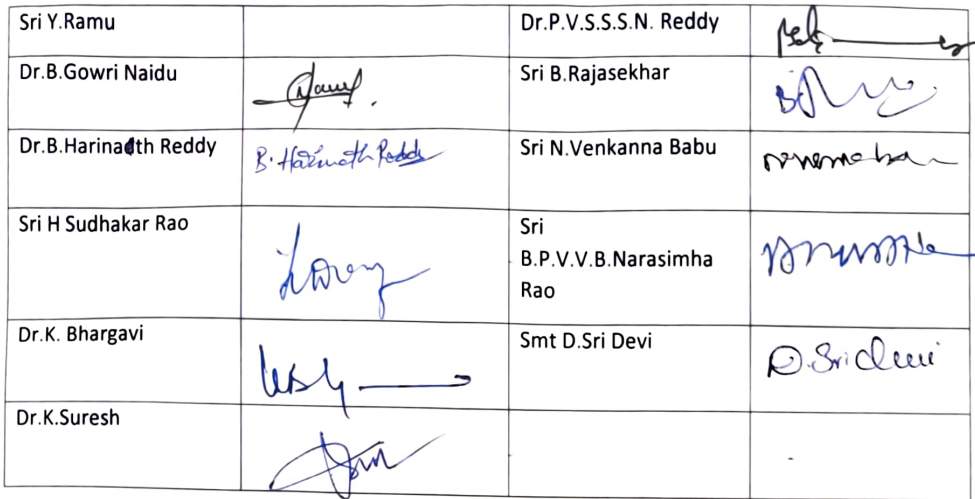 Sri Y.Ramu
Dr.P.V.S.S.S.N. Reddy
Dr.B.Gowri Naidu
Sri B.Rajasekhar
Dr.B.Harinadth Reddy
B. Harinath Reddy
Sri N.Venkanna Babu
Sri H Sudhakar Rao
Sri
B.P.V.V.B.Narasimha
Rao
Dr.K. Bhargavi
Smt D.Sri Devi
D.Sridevi
Dr.K.Suresh